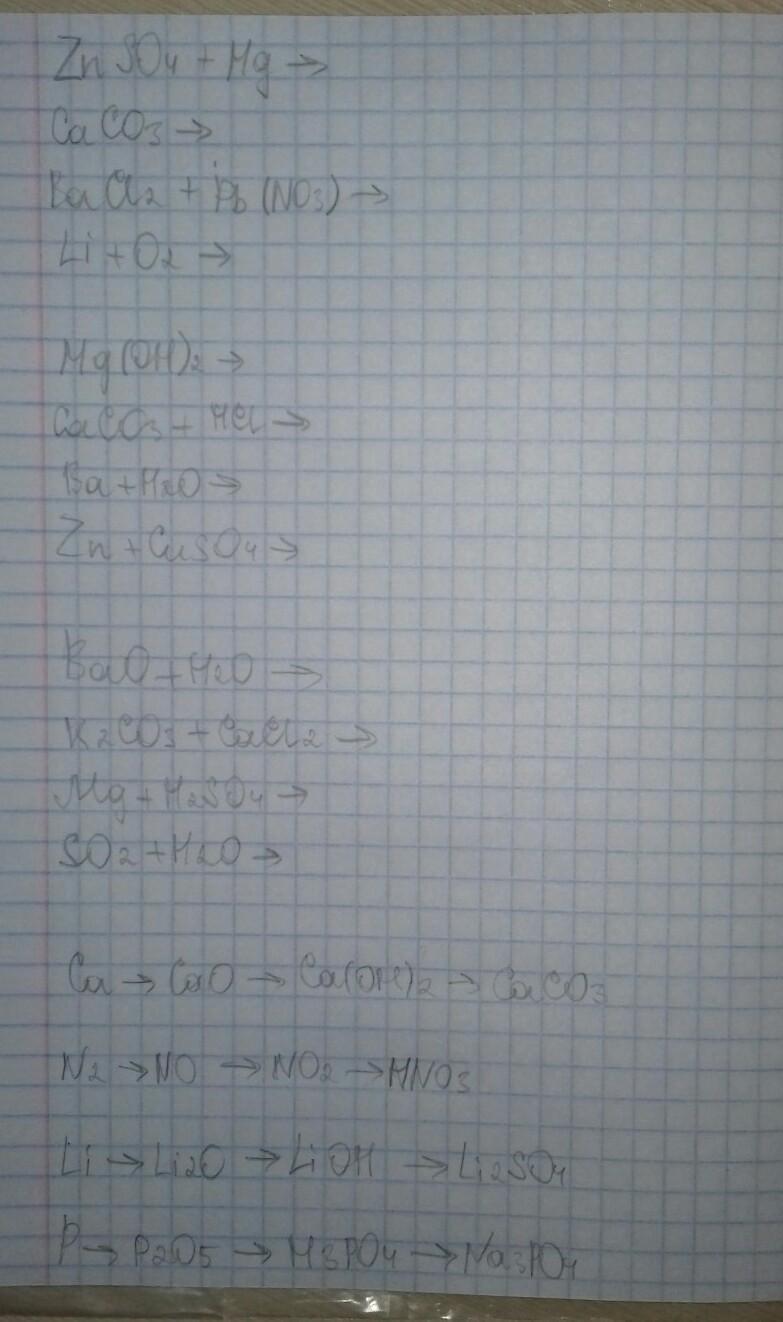 ZnSO4 + Mg →
CaCO3 →
BaCl2 + Pb(NO3) →
Li + O2 →
Mg(OH)2 →
CaCO3 + HCl →
Ba + H2O →
Zn + CuSO4 →
BaO + H2O →
K2CO3 + CaCl2 →
Mg + H2SO4 →
SO2 + H2O →
Ca → CaO → Ca(OH)2 → CaCO3
N2 → NO → NO2 → HNO3
Li → Li2O → LiOH → Li2SO4
P → P2O5 → H3PO4 → Na3PO4